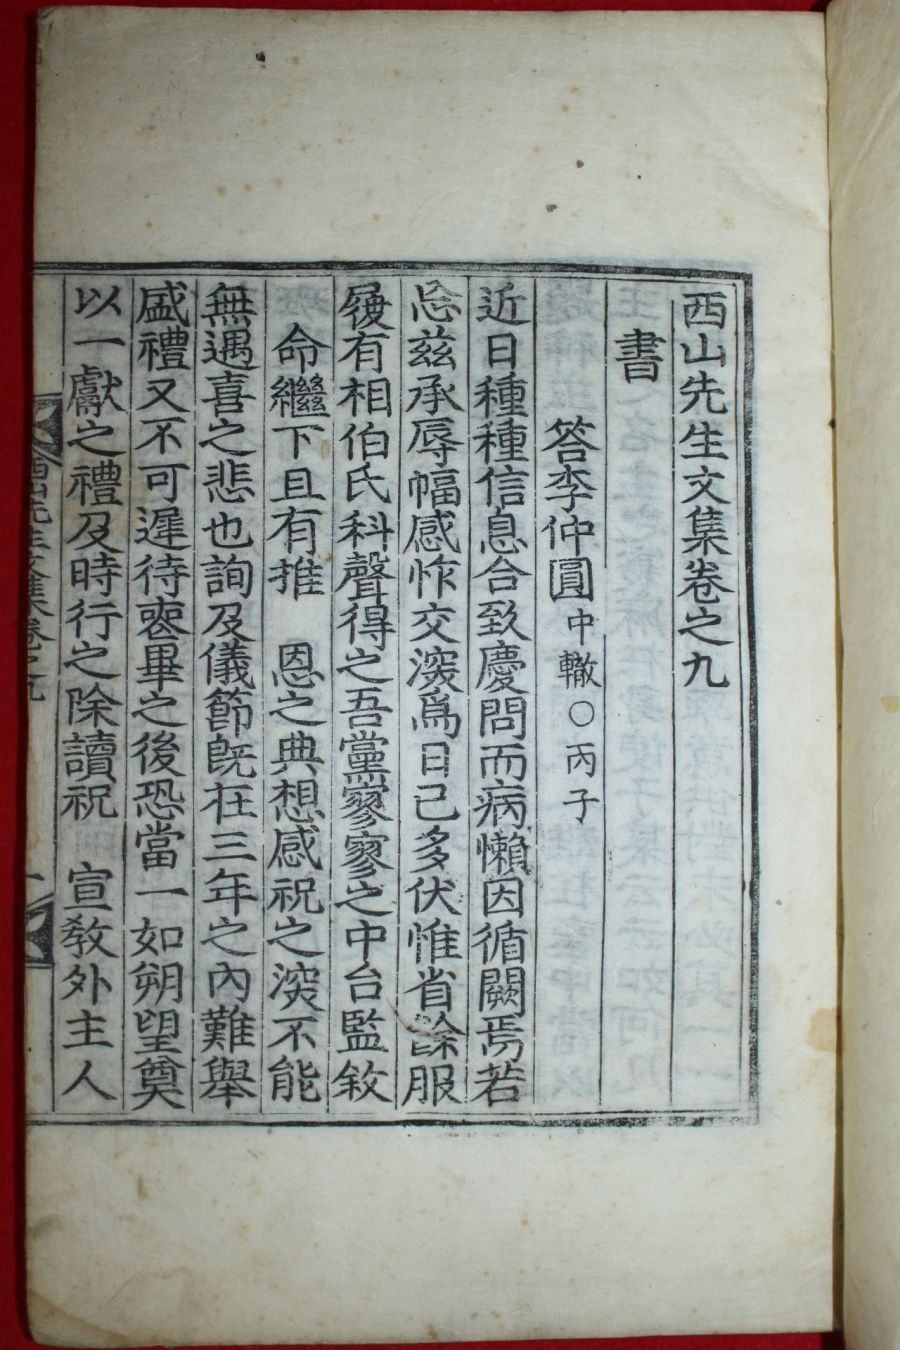 西山先生文集卷之九
書
答李仲圓中轍○丙子
近日種種信息合致慶問而病懶因循闕焉若
忘玆承辱幅感怍交深爲日已多伏惟省餘服
履有相伯氏科聲得之吾黨寥寥之中台監敘
命繼下且有推 恩之典想感祝之深不能
無遇喜之悲也詢及儀節旣在三年之內難舉
盛禮又不可遲待喪畢之後恐當一如朔望奠
以一獻之禮及時行之除讀祝 宣敎外主人
西山先生文集卷之九 一